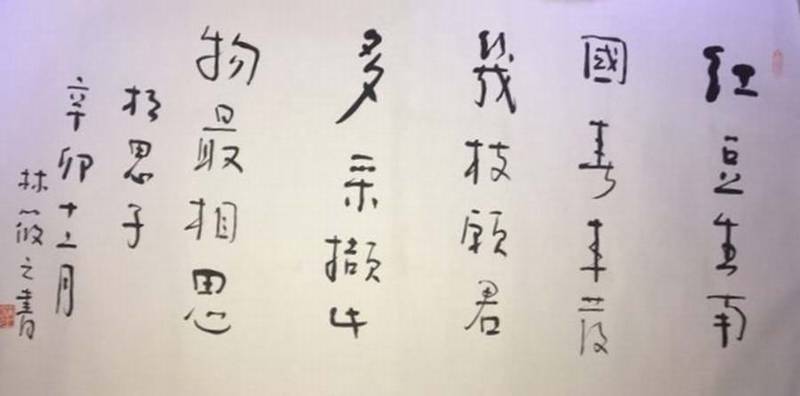 紅豆生南
國春来發
幾枝願君
多采擷此
物最相思
相思子
辛卯十二月
林筱之書